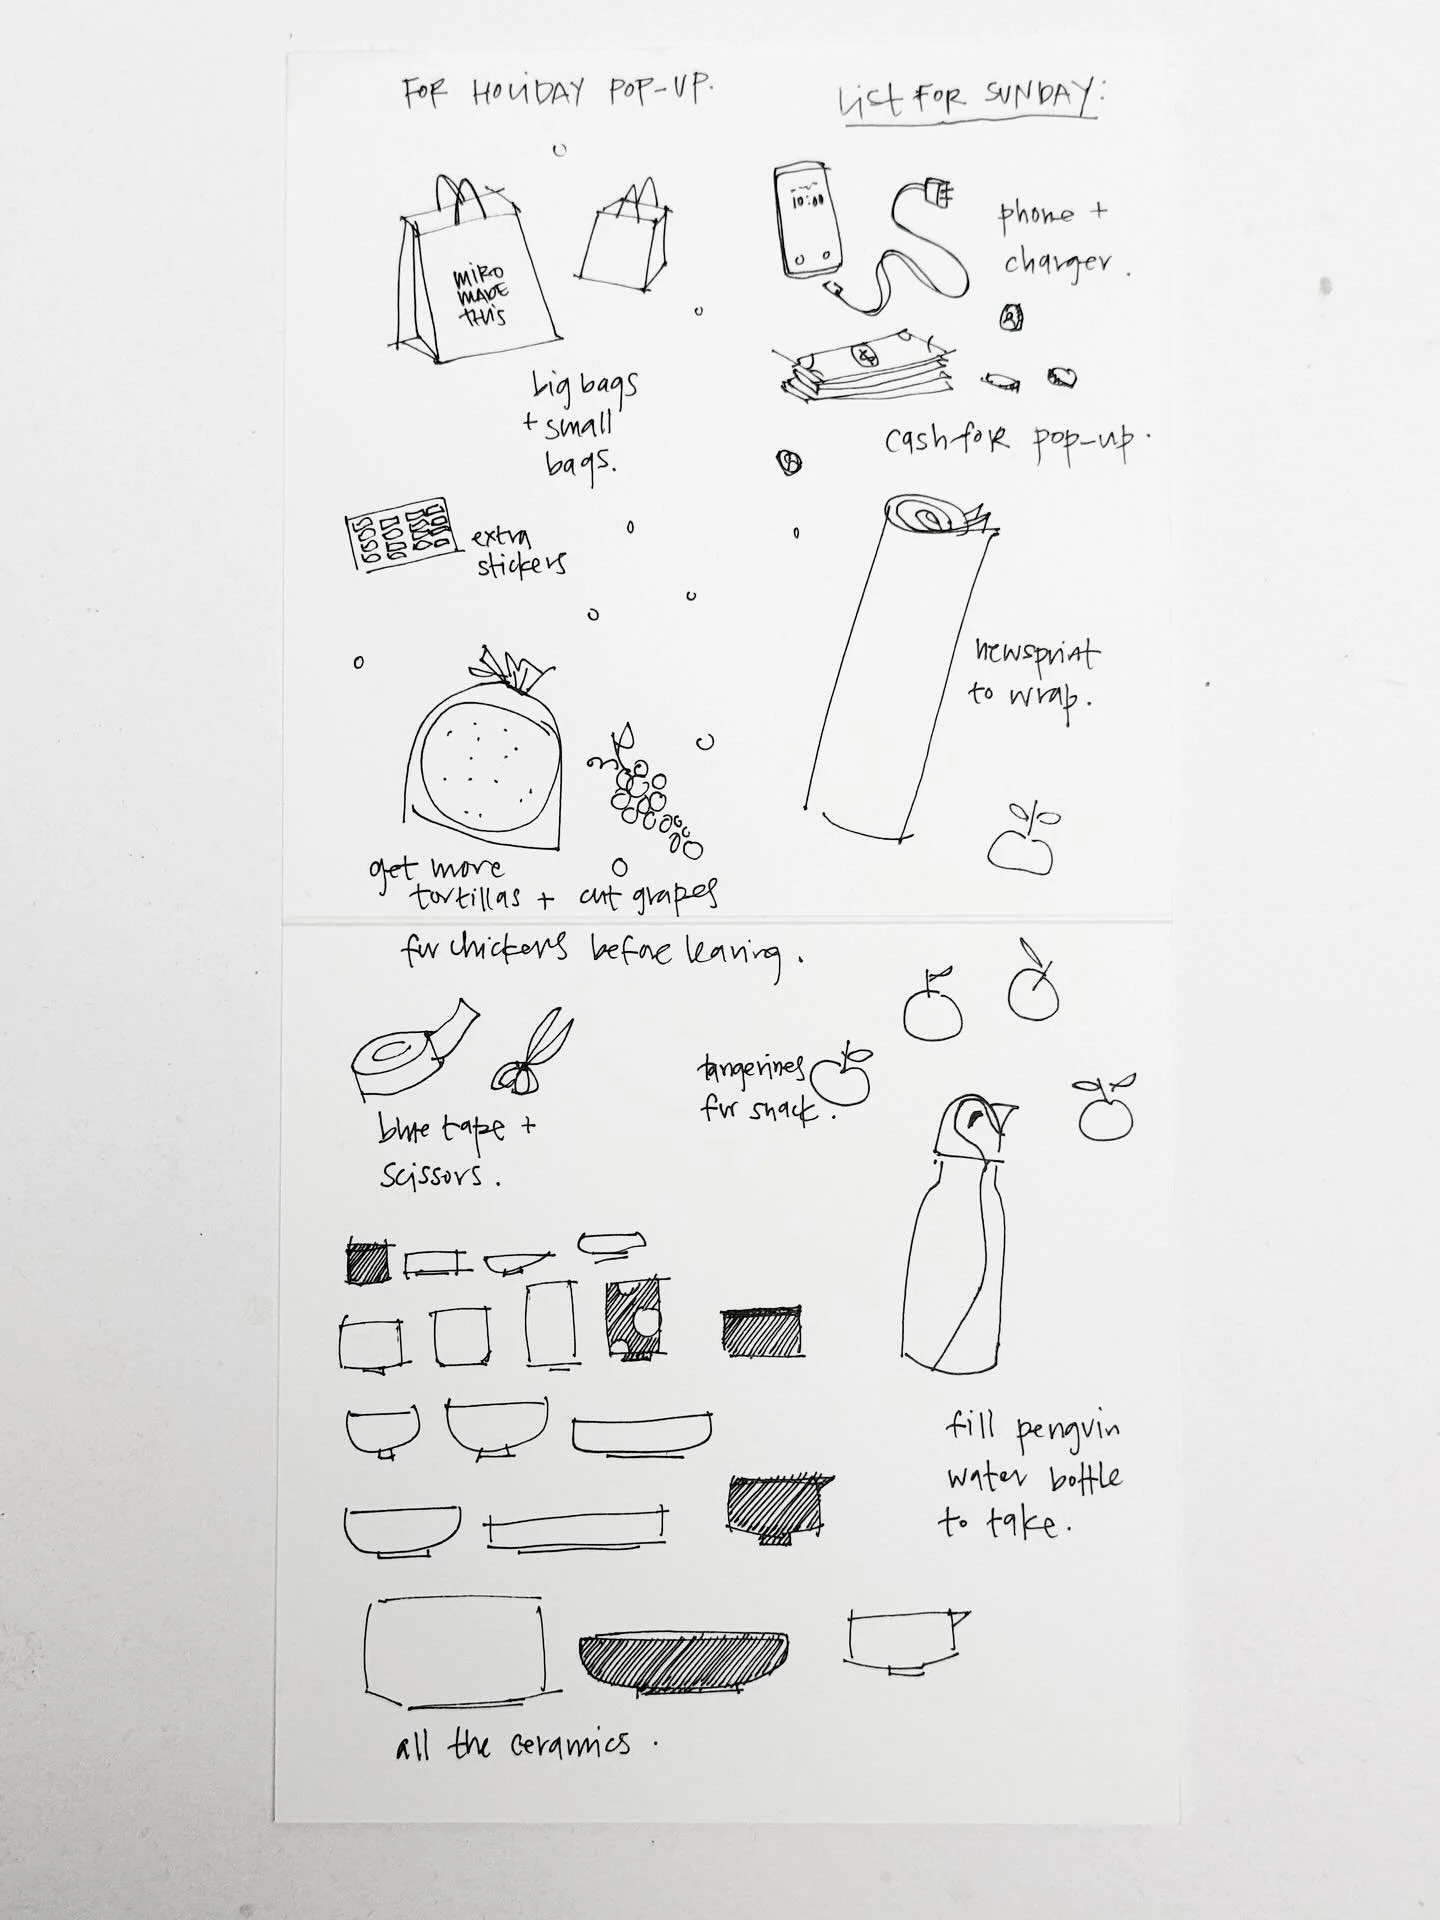 FOR HOLIDAY POP-UP.
LIST FOR SUNDAY:
MIRO
MADE
THIS
big bags
+ small
bags.
10:00
phone +
charger.
$
cash for pop-up.
extra
stickers
newsprint
to wrap.
get more
tortillas + cut grapes
for chickens before leaving.
blue tape +
scissors.
tangerines
for snack.
fill penguin
water bottle
to take.
all the ceramics.